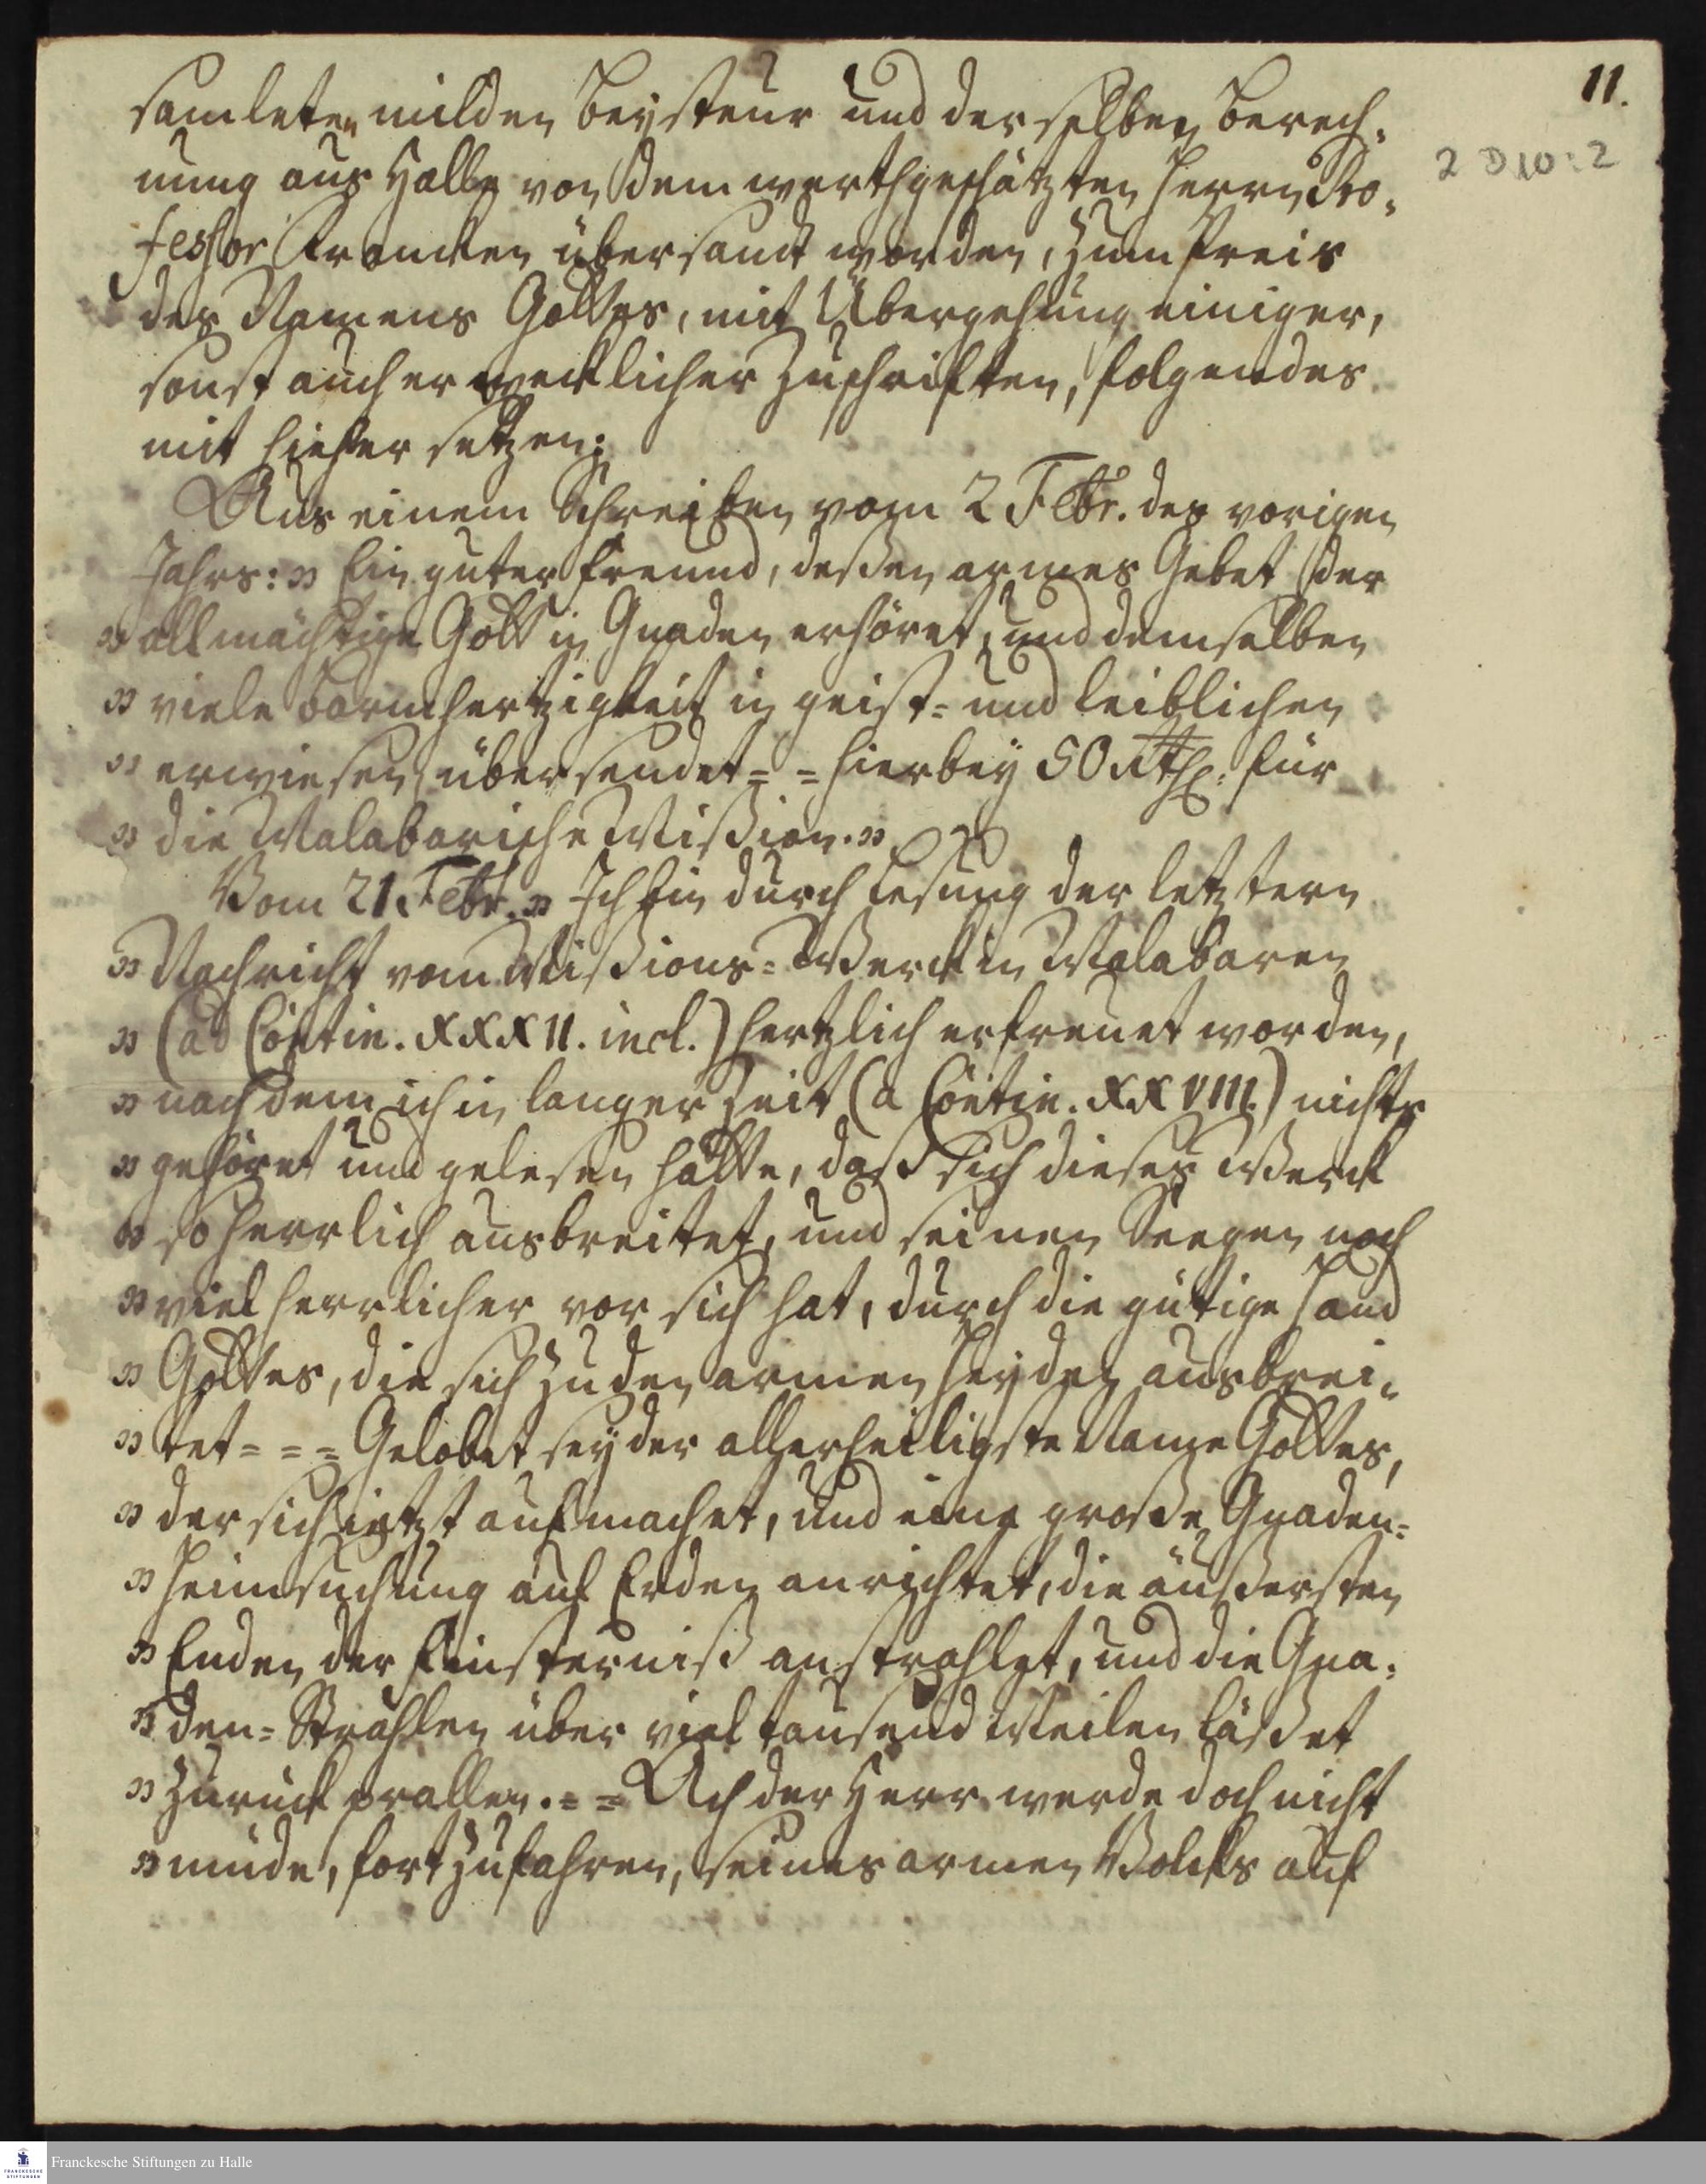 11.
2 D 10:2
samleten milden Beysteur und derselben Berech-
nung aus Halle von dem werthgeschätzten Herrn Pro-
fessor Francken übersandt worden, zum Preis
des Namens Gottes, mit Übergehung einiger,
sonst auch erwecklicher Zuschriften, folgendes
mit hieher setzen:
Aus einem Schreiben vom 2 Febr. des vorigen
Jahrs: „Ein guter Freund, deßen armes Gebet der
„allmächtige Gott in Gnaden erhöret, und demselben
„viele Barmhertzigkeit in geist- und leiblichen
„erwiesen, übersendet = = hierbey 50 Rthl. für
„die Malabarische Mißion.„
Vom 21. Febr. „Ich bin durch Lesung der letztern
„Nachricht vom Mißions-Werck in Malabaren
„(ad Contin. XXXII. incl.) hertzlich erfreuet worden,
„nachdem ich in langer Zeit (a Contin. XXVIII.) nichts
„gehöret und gelesen hatte, daß sich dieses Werck
„so herrlich ausbreitet, und seinen Seegen noch
„viel herrlicher vor sich hat, durch die gütige Hand
„Gottes, die sich zu den armen Heyden ausbrei-
„tet = = = Gelobet sey der allerheiligste Name Gottes,
„der sich ietzt aufmachet, und eine große Gnaden-
„Heimsuchung auf Erden anrichtet, die äußersten
„Enden der Finsterniß anstrahlet, und die Gna-
„den-Strahlen über viel tausend Meilen läßet
„zurück prallen. = = Ach der Herr werde doch nicht
„müde, fortzufahren, seines armen Volcks auf
Franckesche Stiftungen zu Halle
FRANCKESCHE
STIFTUNGEN